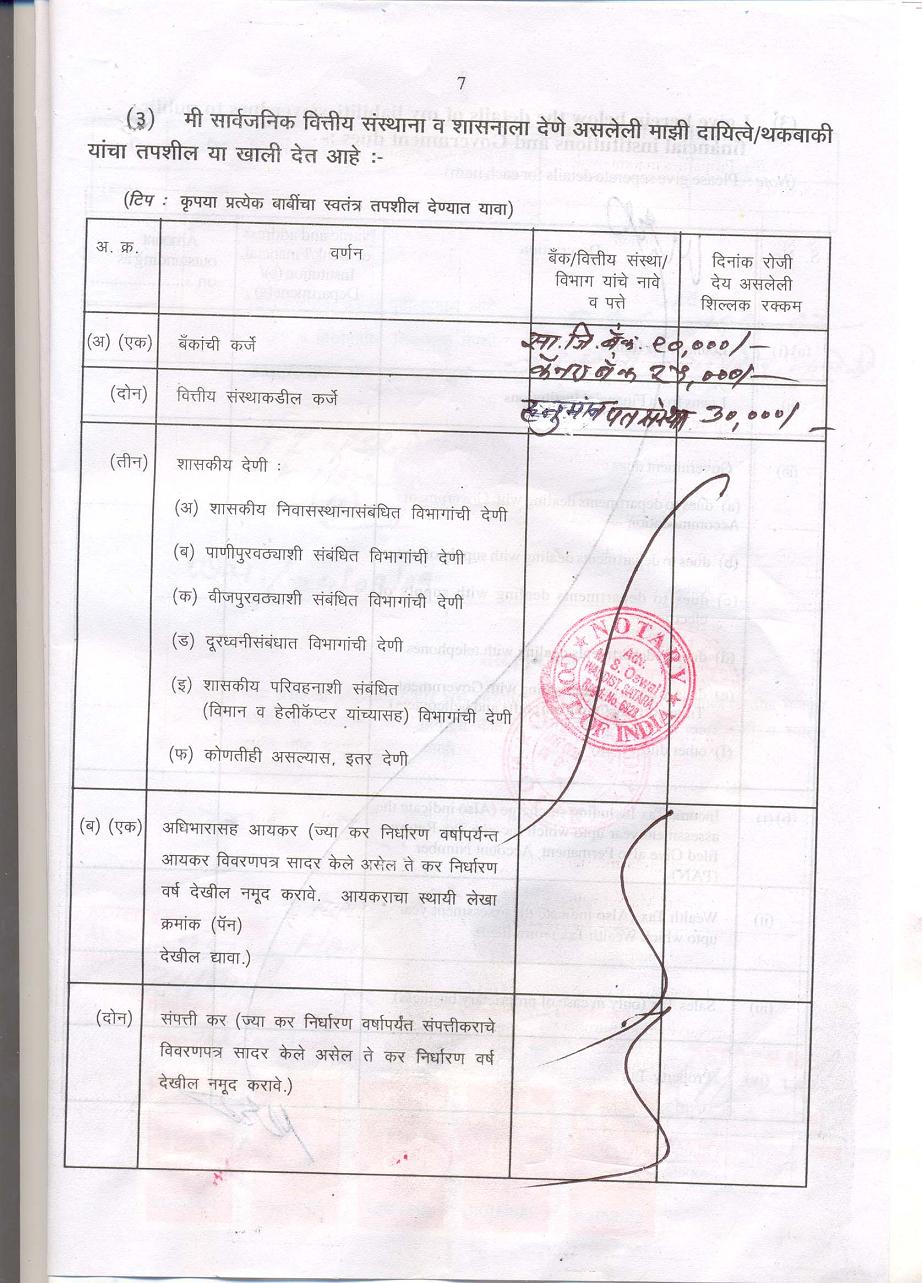 7
(३) मी सार्वजनिक वित्तीय संस्थाना व शासनाला देणे असलेली माझी दायित्वे/थकबाकी
यांचा तपशील या खाली देत आहे :-
(टिप : कृपया प्रत्येक बाबींचा स्वतंत्र तपशील देण्यात यावा)
अ. क्र.
वर्णन
बँक/वित्तीय संस्था/
विभाग यांचे नावे
व पत्ते
दिनांक रोजी
देय असलेली
शिल्लक रक्कम
(अ) (एक) बँकांची कर्जे
सा.जि.बँक.
कॅनरा बँक २५,०००/-
(दोन) वित्तीय संस्थाकडील कर्जे
हनुमान पतसंस्था ३०,०००/-
(तीन) शासकीय देणी :
(अ) शासकीय निवासस्थानासंबंधित विभागांची देणी
(ब) पाणीपुरवठ्याशी संबंधित विभागांची देणी
(क) वीजपुरवठ्याशी संबंधित विभागांची देणी
(ड) दूरध्वनीसंबंधात विभागांची देणी
(इ) शासकीय परिवहनाशी संबंधित
(विमान व हेलीकॅप्टर यांच्यासह) विभागांची देणी
(फ) कोणतीही असल्यास, इतर देणी
NOTARY
GOVT. OF INDIA
Adv.
S. Oswal
WAI DIST. SATARA
(ब) (एक) अधिभारासह आयकर (ज्या कर निर्धारण वर्षापर्यन्त
आयकर विवरणपत्र सादर केले असेल ते कर निर्धारण
वर्ष देखील नमूद करावे. आयकराचा स्थायी लेखा
क्रमांक (पॅन)
देखील द्यावा.)
(दोन) संपत्ती कर (ज्या कर निर्धारण वर्षापर्यंत संपत्तीकराचे
विवरणपत्र सादर केले असेल ते कर निर्धारण वर्ष
देखील नमूद करावे.)